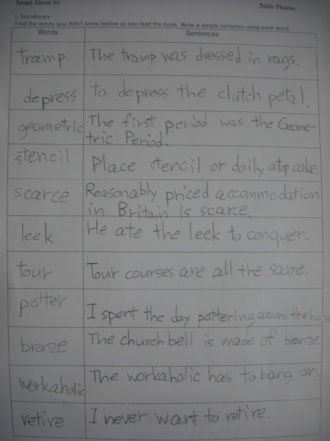 Smart About Art
Pablo Picasso
1. Vocabulary
Find the words you didn't know before as you read the book. Write a simple sentence using each word.
Words Sentences
tramp The tramp was dressed in rags.
depress to depress the clutch petal.
geometric The first period was the Geome-
tric Period.
stencil Place stencil or doily atop cake.
scarce Reasonably priced accommodation
in Britain is scarce.
leek He ate the leek to conquer.
tour Tour courses are all the same.
potter I spent the day pottering around the
bronze The church bell is made of bronze
workaholic The workaholic has to bang on.
retire I never want to retire.